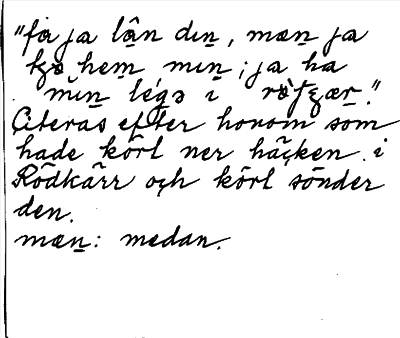 "får ja lân din̲, mæn̲ ja
hem̲ min̲; ja ha
min̲ légə i
Citeras efter honom som
hade kört ner häcken i
Rödkärr och kört sönder
den.
mæn̲: medan.